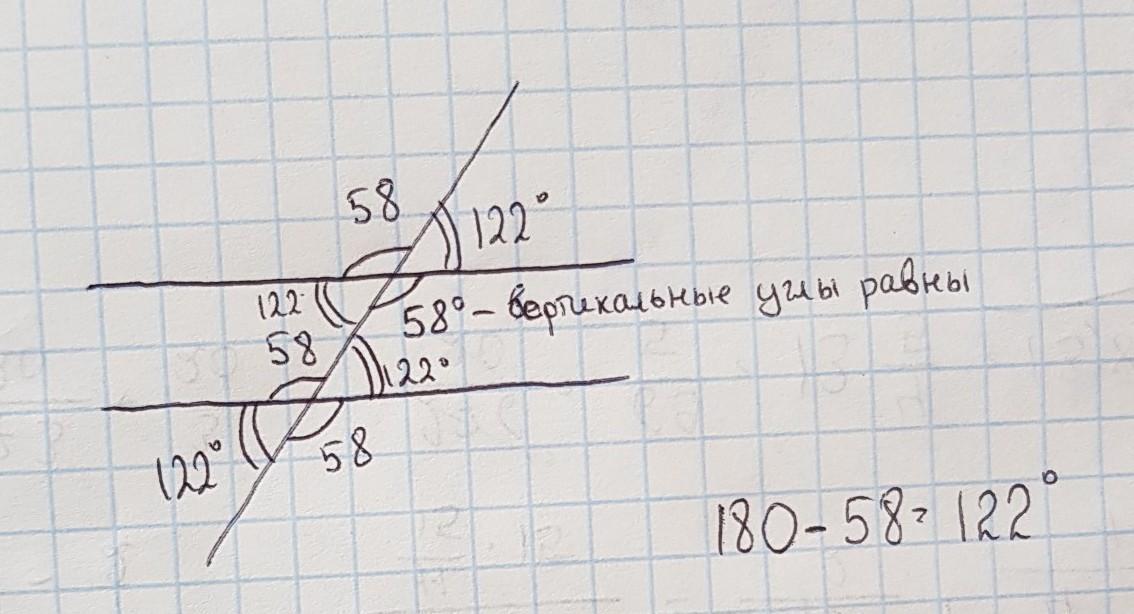 58
122°
122
58° - вертикальные углы равны
58
122°
122°
58
180 - 58 = 122°